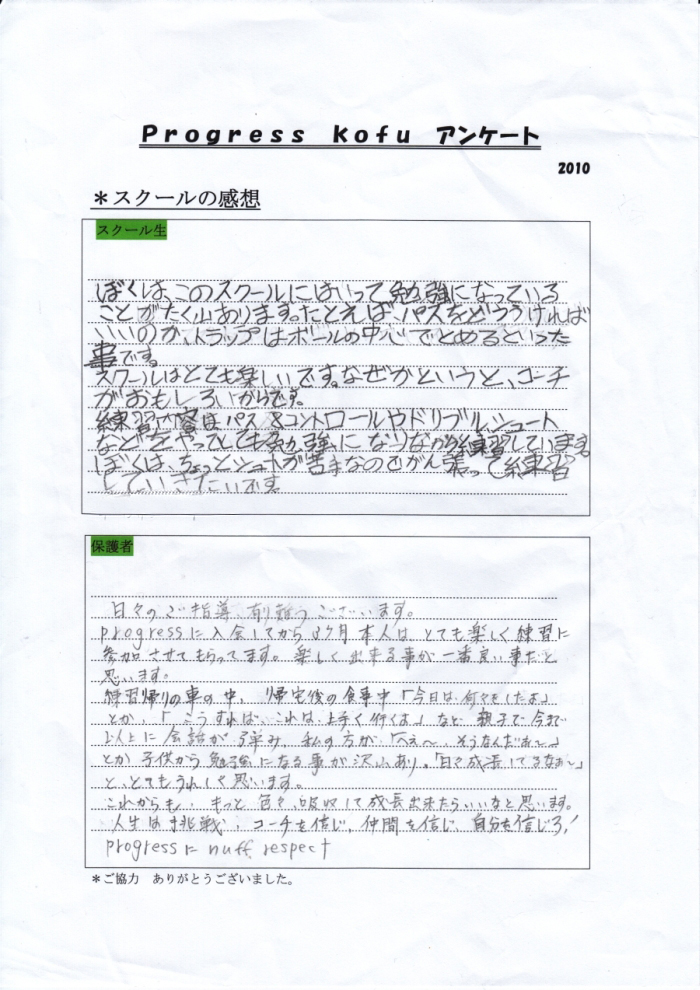 Progress kofu アンケート
2010
＊スクールの感想
スクール生
ぼくは、このスクールにはいって勉強になっている
ことがたく山あります。たとえば、パスをどううければ
いいのか、トラップはボールの中心でとめるといった
事です。
スクールはとても楽しいです。なぜかというと、コーチ
がおもしろいからです。
練習はパス&コントロールやドリブル、シュート
などをやってとても勉強になりながら練習しています。
ぼくは、ちょっとシュートが苦手なのでがん張って練習
していきたいです。
保護者
日々のご指導、有り難うございます。
progressに入会してから3ヶ月本人は、とても楽しく練習に
参加させてもらってます。楽しく出来る事が一番良い事だと
思います。
練習帰りの車の中、帰宅後の食事中「今日は何々をしたよ」
とか、「こうすれば、これは上手く行くよ」など親子で今まで
以上に会話が弾み、私の方が「へぇ〜、そうなんだぁ〜」
とか子供から勉強になる事が沢山あり。「日々成長してるなぁ〜」
と、とてもうれしく思います。
これからも、もっと色々、吸収して成長出来たらいいなと思います。
人生は挑戦、コーチを信じ、仲間を信じ、自分を信じろ!
progressに nuff respect
＊ご協力　ありがとうございました。